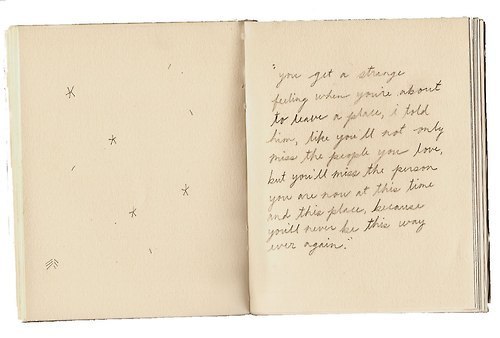 "you get a strange
feeling when you're about
to leave a place, i told
him, like you'll not only
miss the people you love,
but you'll miss the person
you are now at this time
and this place, because
you'll never be this way
ever again."